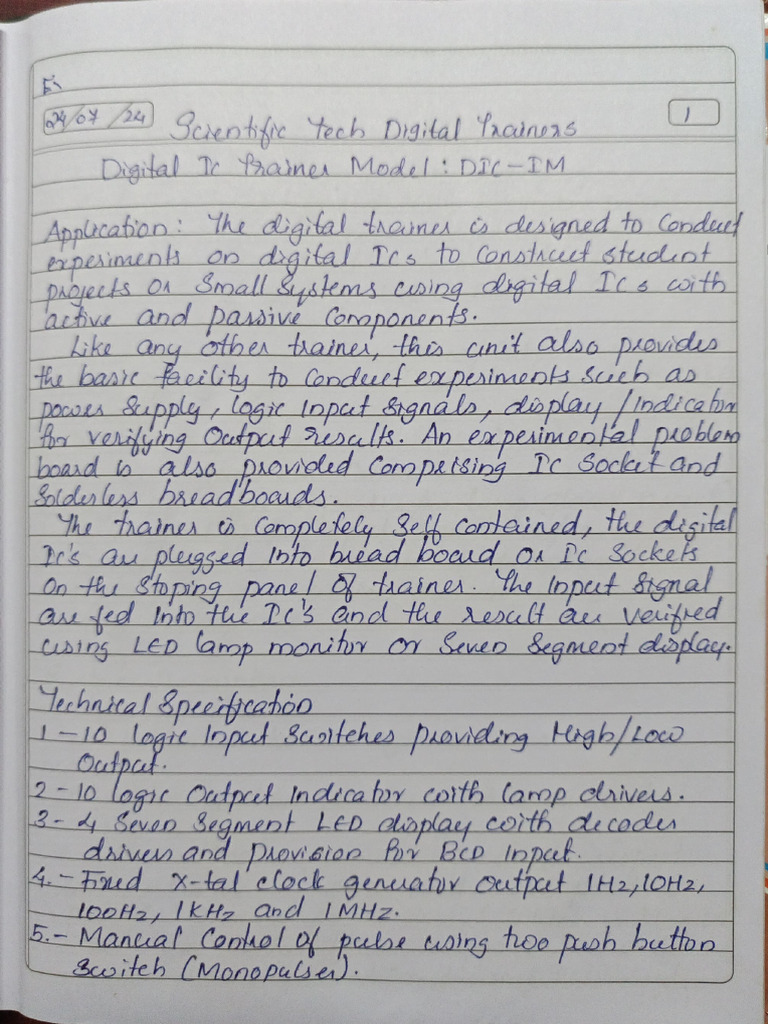 E:
24/07/24
1
Scientific Tech Digital Trainers
Digital Ic Trainer Model: DIC-IM
Application: The digital trainer is designed to Conduct
experiments on digital ICs to Construct student
projects or Small Systems using digital ICs with
active and passive Components.
Like any other trainer, this unit also provides
the basic facility to Conduct experiments Such as
power Supply, logic Input Signals, display/Indicator
for verifying Output results. An experimental problem
board is also provided Comprising Ic Socket and
Solderless breadboards.
The trainer is Completely Self Contained, the digital
Ic's are plugged Into bread board or Ic Sockets
On the Stoping panel of trainer. The Input Signal
are fed Into the Ic's and the result are verified
using LED lamp monitor or Seven Segment display.
Technical Specification
1-10 logic Input Switches providing High/Low
Output.
2-10 logic Output Indicator with lamp drivers.
3-4 Seven Segment LED display with decoder
drivers and provision for BCD Input.
4.- Fixed X-tal clock generator output 1Hz, 10Hz,
100Hz, 1KHz and 1MHz.
5.- Manual Control of pulse using two push button
Switch (Monopulser).